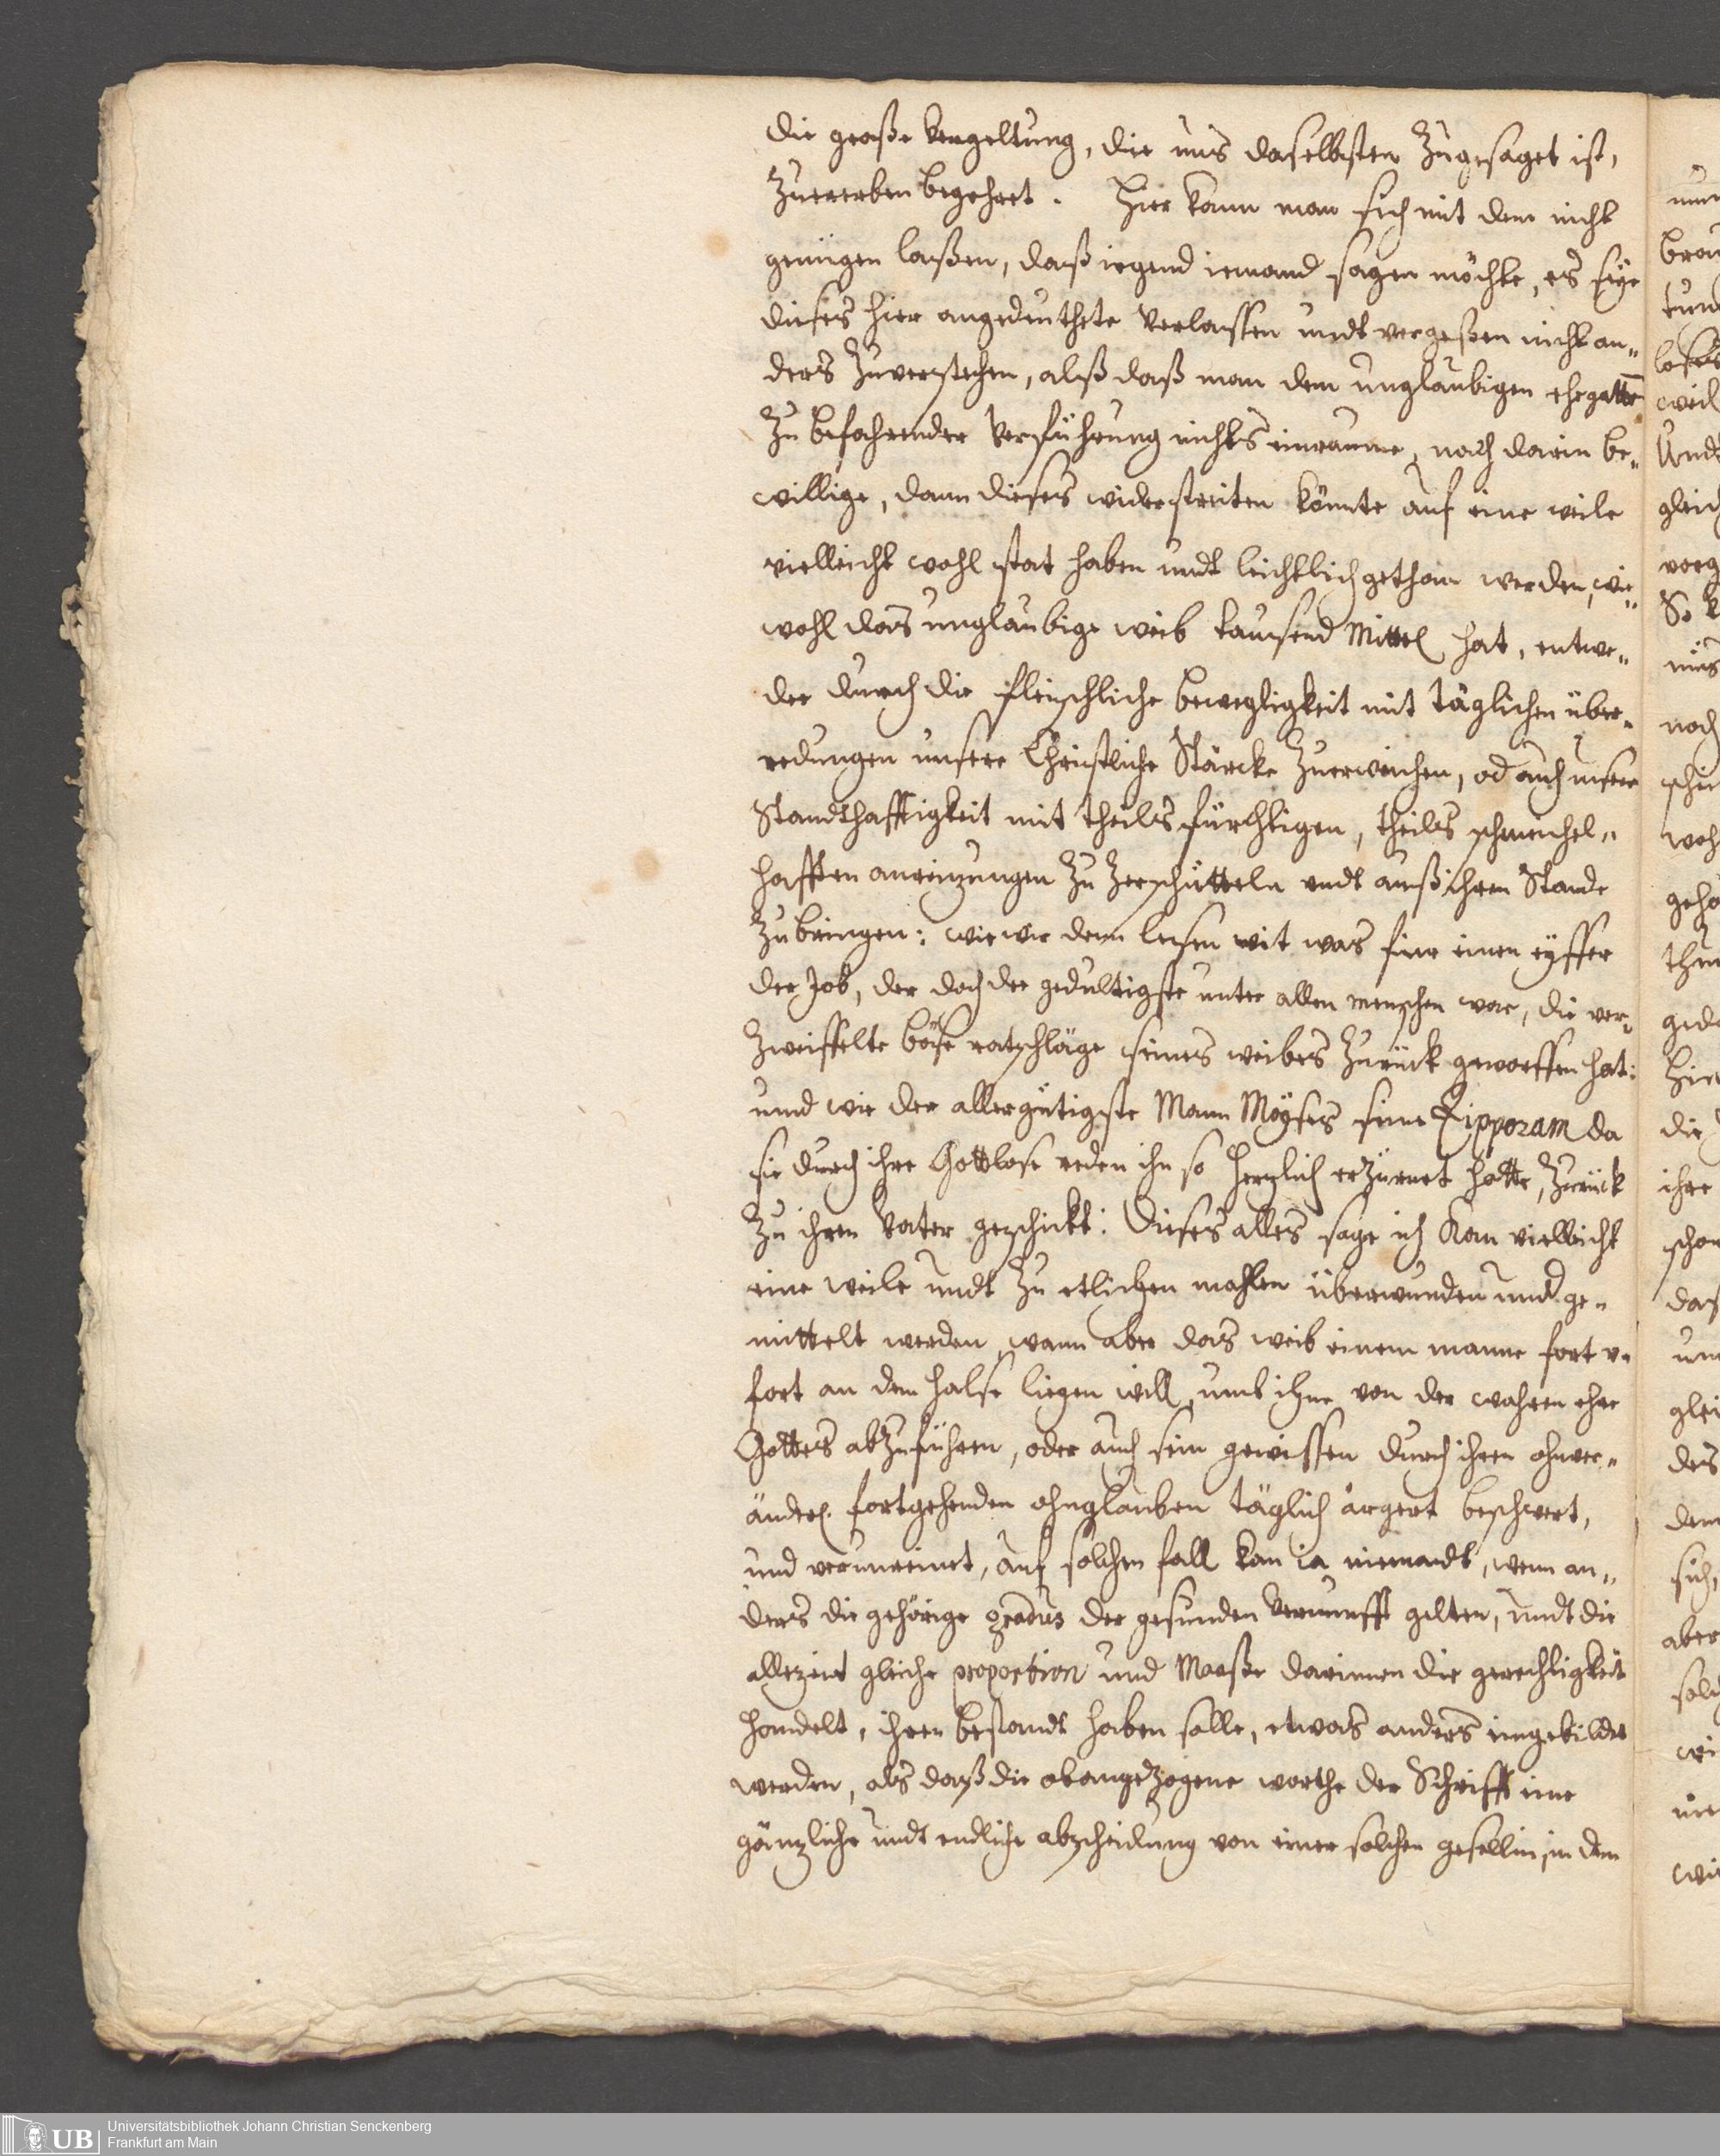 die große Vergeltung, die uns daselbsten zugesaget ist,
zuererben begehret. Hier kann man sich mit dem nicht
genügen laßen, daß irgend iemand sagen möchte, es seye
dieses hier angedeuthete Verlassen undt vergeßen nicht an„
ders zuverstehen, alß daß man dem unglaubigen ehegatten
zu befahrender Verführung nichts einraume, noch darin be„
willige, dann dieses widerstreiten könnte auf eine weile
vielleicht wohl stat haben undt leichtlich gethan werden, wie„
wohl das unglaubige weib tausend Mittel hat, entwe„
der durch die fleischliche bewegligkeit mit täglichen über„
redungen unsere Christliche Stärcke zuerweichen, od auch unsere
Standthafftigkeit mit theils fürchtigen, theils schmeichel„
hafften anreizungen zu zerschütteln undt auß ihrem Stande
zu bringen: wie wir denn lesen mit was für einen eyffer
der Job, der doch der gedultigste unter allen menschen war, die ver„
zweiffelte böse ratschläge seines weibes zurück geworffen hat:
und wie der allergütigste Mann Moyses seine Zipporam da
sie durch ihre Gottlose reden ihn so herzlich erzürnet hatte, zurück
zu ihrem Vater geschickt: Dieses alles sage ich kan vielleicht
eine weile undt zu etlichen mahlen überwunden und ge„
mittelt werden, wann aber das weib einem manne fort v.
fort an dem halse liegen will, umb ihne von der wahren ehre
Gottes abzuführen, oder auch sein gewissen durch ihren ohnver„
änderl. fortgehenden ohnglauben täglich ärgert beschwert,
und verunreinet, auf solchen fall kan ia niemandt, wenn an„
ders die gehörige gradus der gesunden Vernunfft gelten, undt die
allezeit gleiche proportion und Maaße darinnen die gerechtigkeit
handelt, ihren bestandt haben solle, etwas anders eingebildet
werden, als daß die obangezogene worthe der Schrifft eine
gänzliche undt endliche abscheidung von einer solchen gesellin, in dem
Universitätsbibliothek Johann Christian Senckenberg
Frankfurt am Main
UB